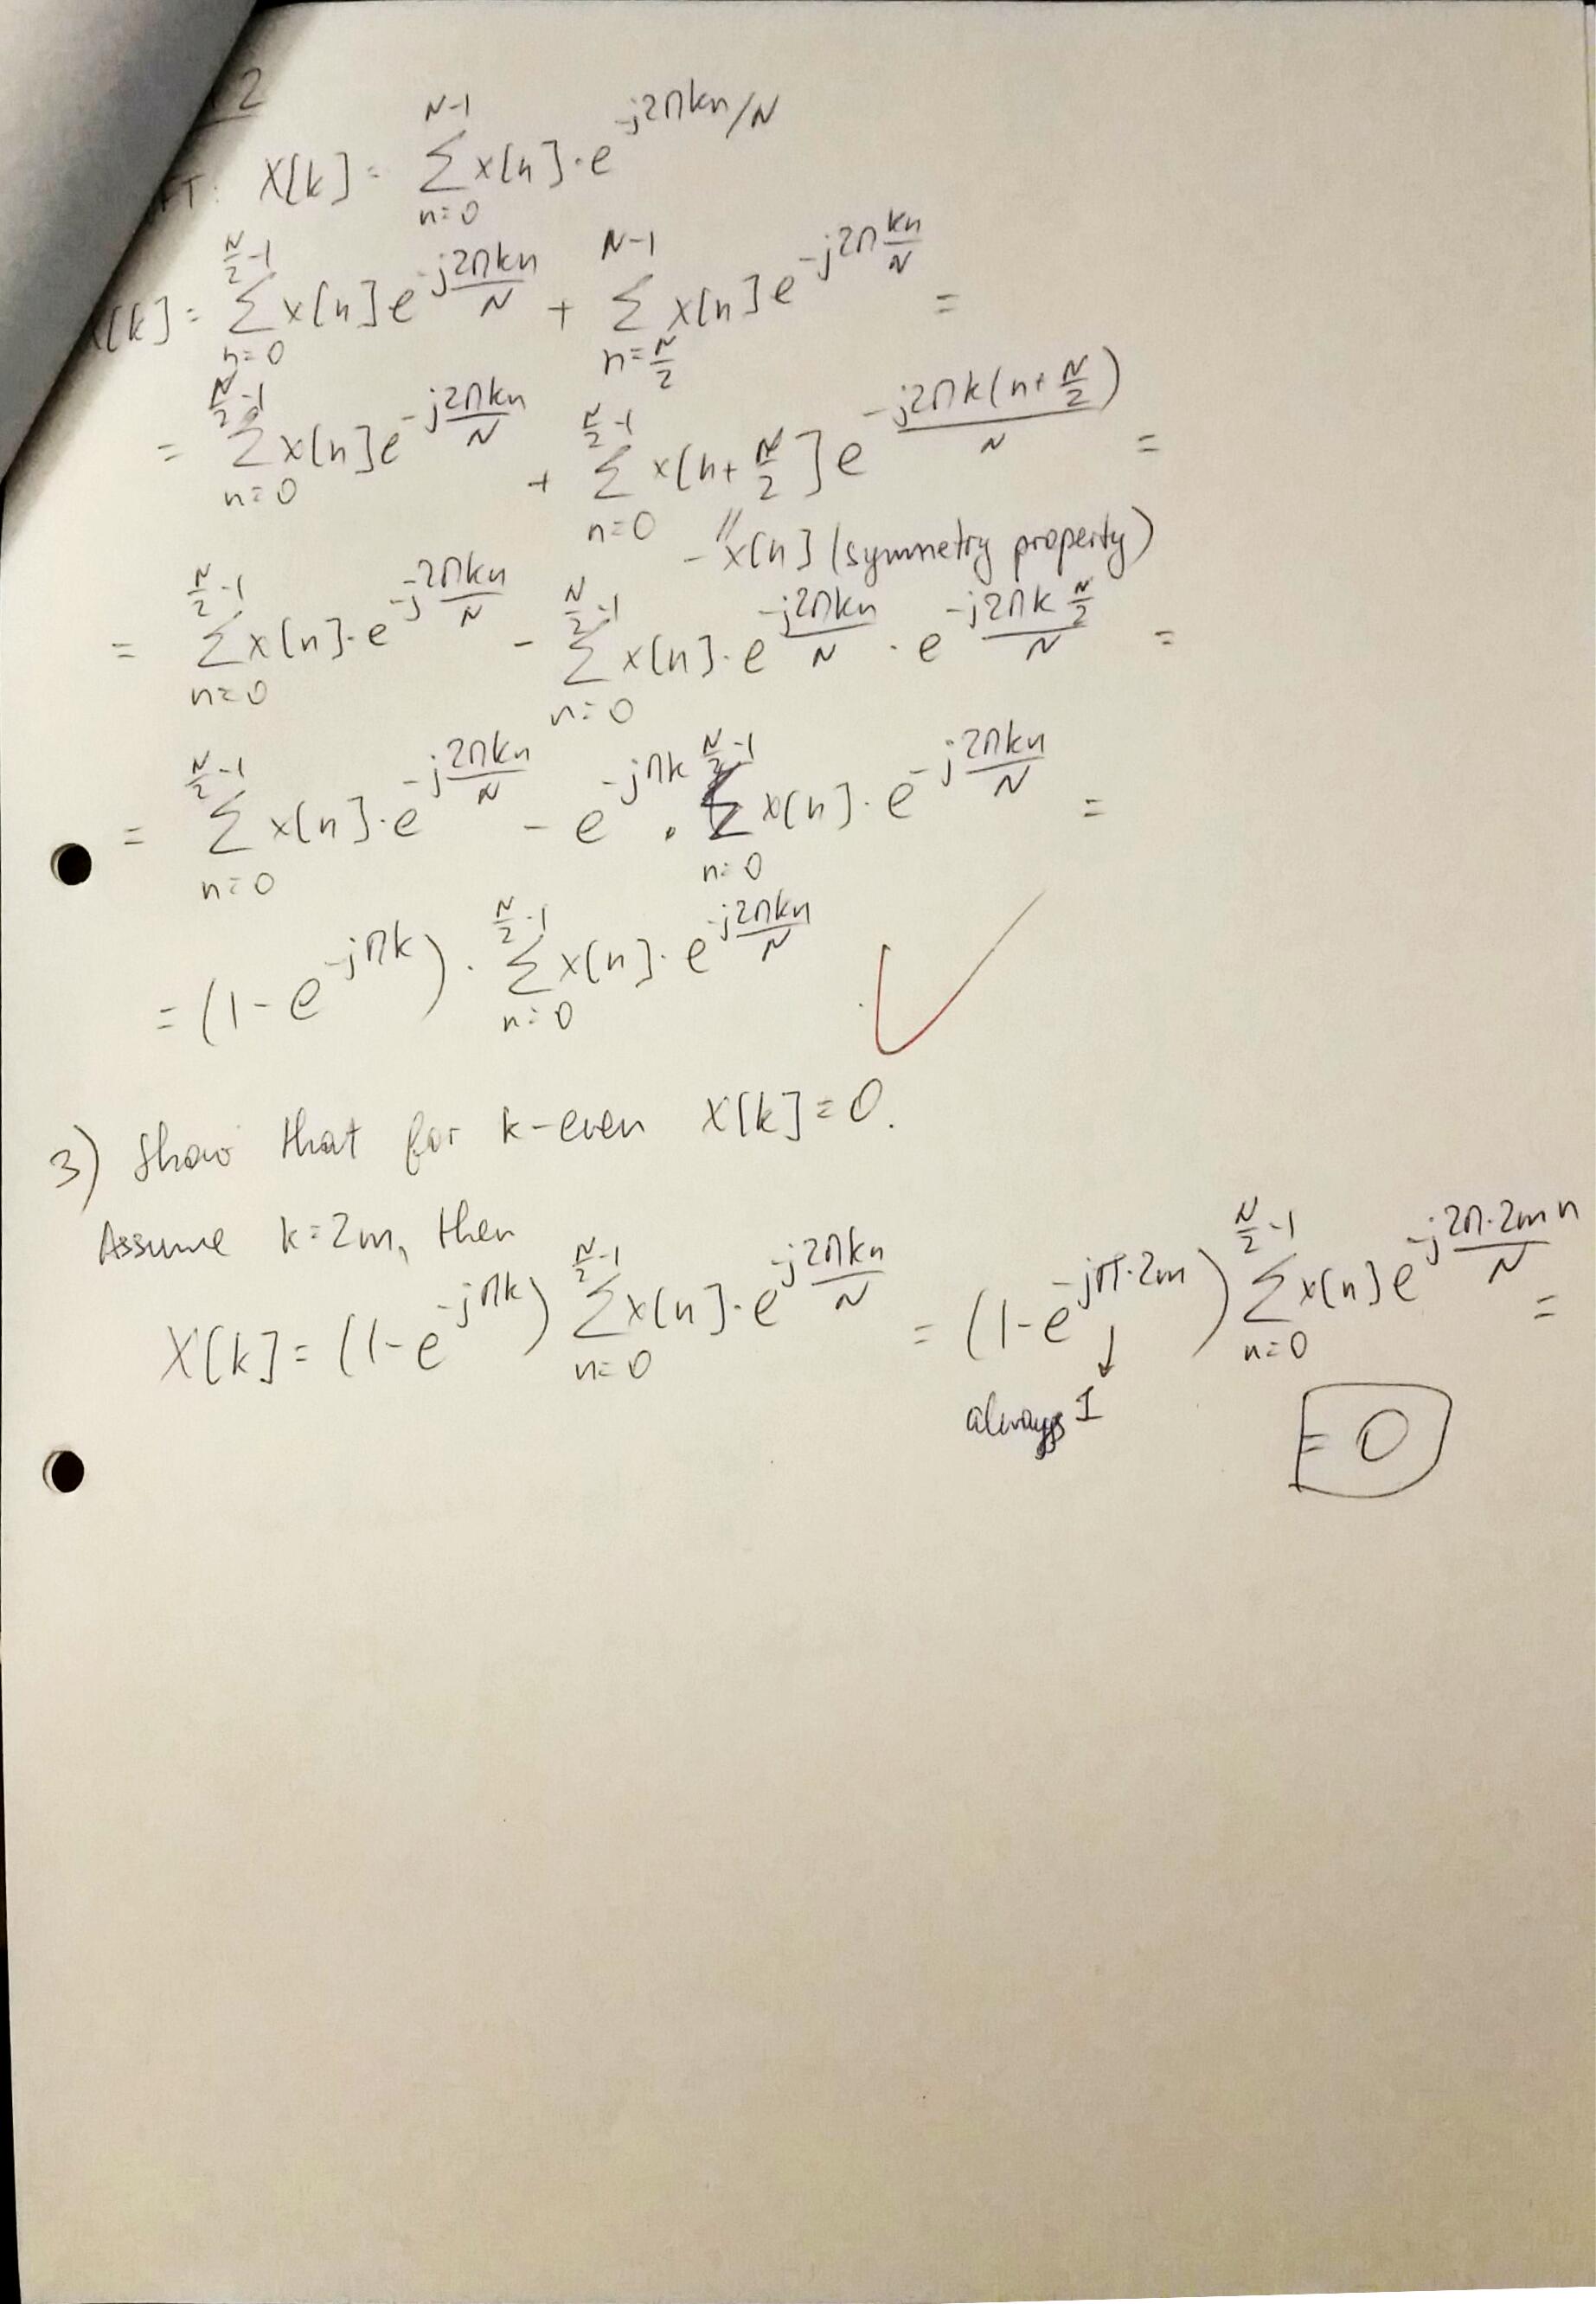 2
FT: X[k] = \sum_{n=0}^{N-1} x[n] · e^{-j2πkn/N}
X[k] = \sum_{n=0}^{\frac{N}{2}-1} x[n] e^{-j\frac{2πkn}{N}} + \sum_{n=\frac{N}{2}}^{N-1} x[n] e^{-j2π\frac{kn}{N}} =
= \sum_{n=0}^{\frac{N}{2}-1} x[n] e^{-j\frac{2πkn}{N}} + \sum_{n=0}^{\frac{N}{2}-1} x[n+\frac{N}{2}] e^{\frac{-j2πk(n+\frac{N}{2})}{N}} =
-x[n] (symmetry property)
= \sum_{n=0}^{\frac{N}{2}-1} x[n] · e^{-j\frac{2πkn}{N}} - \sum_{n=0}^{\frac{N}{2}-1} x[n] · e^{-j\frac{2πkn}{N}} · e^{-j\frac{2πk\frac{N}{2}}{N}} =
= \sum_{n=0}^{\frac{N}{2}-1} x[n] · e^{-j\frac{2πkn}{N}} - e^{-jπk} · \sum_{n=0}^{\frac{N}{2}-1} x[n] · e^{-j\frac{2πkn}{N}} =
= (1 - e^{-jπk}) · \sum_{n=0}^{\frac{N}{2}-1} x[n] · e^{-j\frac{2πkn}{N}}
3) Show that for k-even X[k] = 0.
Assume k=2m, then
X[k] = (1 - e^{-jπk}) \sum_{n=0}^{\frac{N}{2}-1} x[n] · e^{-j\frac{2πkn}{N}} = (1 - e^{-jπ·2m}) \sum_{n=0}^{\frac{N}{2}-1} x[n] e^{-j\frac{2π·2mn}{N}} =
always 1
= 0